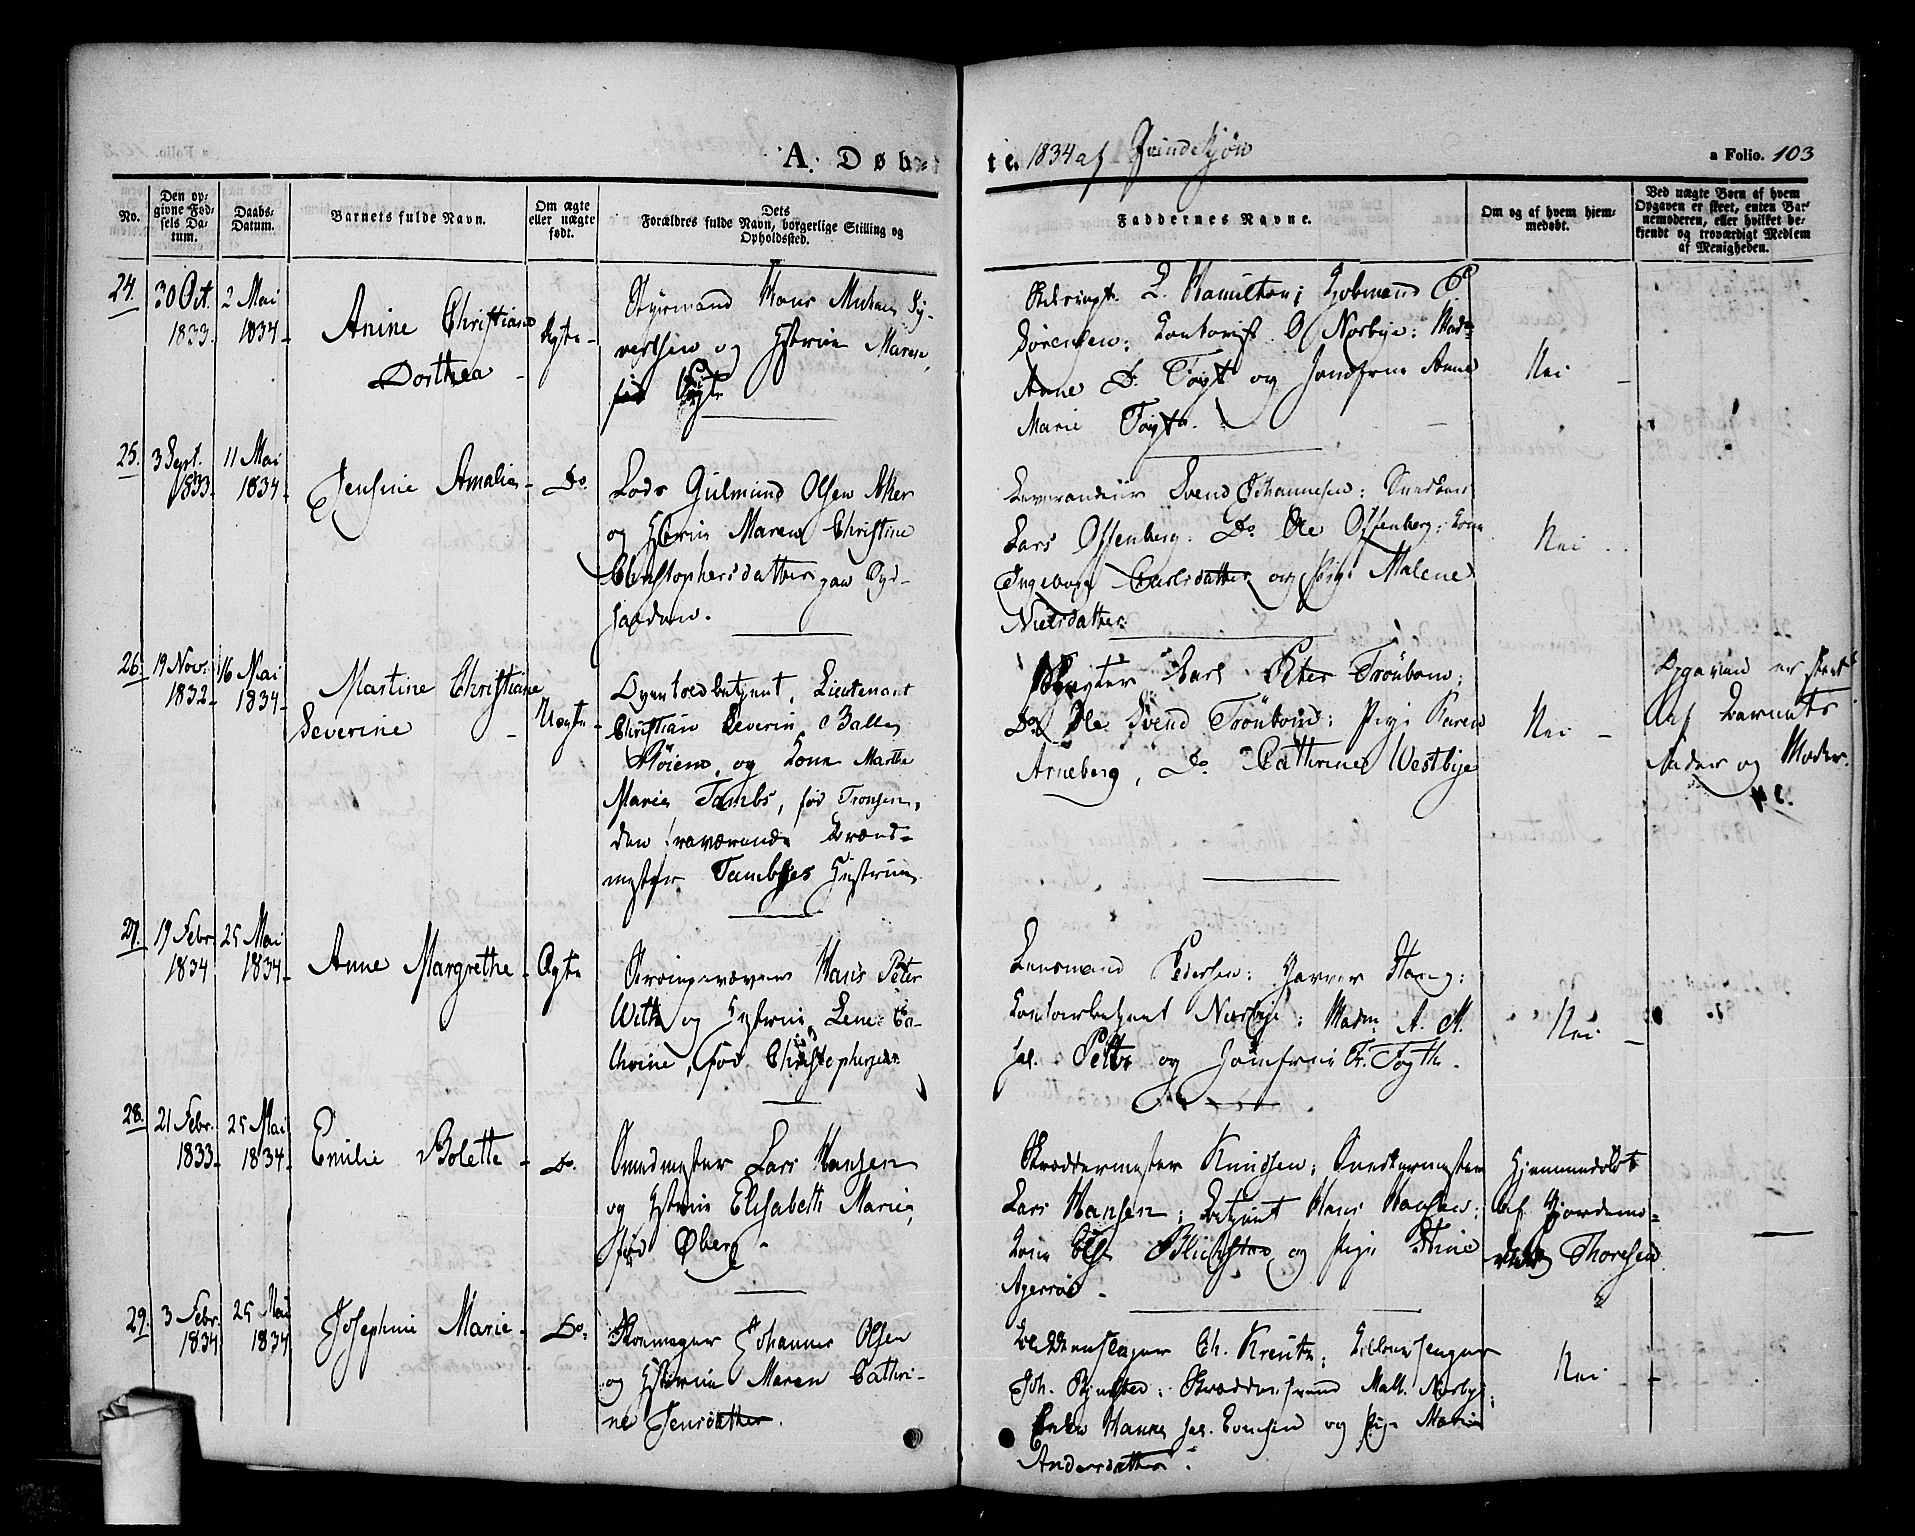 A. Døbte. 1834 af Qvindekjøn
a Folio. 103
No.
Den opgivne Fødsels Datum.
Daabs-Datum.
Barnets fulde Navn.
Om ægte eller uægte født.
Dets Forældres fulde Navn, borgerlige Stilling og Opholdssted.
Faddernes Navne.
Om og af hvem hjemmedøbt.
Ved uægte Børn af hvem Opgaven er skeet, enten Barnemoderen, eller hvilket bekjendt og troværdigt Medlem af Menigheden.
24.
30 Oct. 1833.
2 Mai 1834
Anine Christiane
Dorthea
Ægte
Styrmand Hans
vertsen og Hstrue Maren
Hamilton; Kobmand P.
Sørensen; Contorist O Norbye: Mad
Anne D. Foyt og Jomfrue Anne
Marie Foyt.
Nei
25.
3 Sept. 1833
11 Mai 1834
Jensine Amalie
Do
Lods Gulmund Olsen Aker
og Hstrue Maren Christine
Christophersdatter
Leverandeur Svend Johannesen:
Lars Offenberg. Do Ole Offenberg: Kone
Ingeborg Carlsdatter og Pige Malene
Nielsdatter
Nei
26.
19 Nov. 1832
16 Mai 1834
Martine Christiane
Severine
Uægte
Overtoldbetjent, Lieutenant
Christian Severin Balle
Høiem, og Kone Marthe
Maria Tambs, fød Tronsen,
den fraværende Brænd-
mester Tambses Hustrue
Carl Peter Trönbom;
Do Ole Svend Trönbom: Pige Karen
Arneberg, Do Cathrine Westbye
Nei
Opgaven er skeet
af Barnets
Fader og Moder.
27.
19 Febr. 1834
25 Mai 1834
Anne Margrethe
Ægte
Hans Peter
With og Hstrue Lene Ca-
thrine, fød Christophersen
Lensmand Pedersen:
Contoirbetjent Norbye; Madm A. M.
Sal. Petter og Jomfrue Fr. Foyth.
Nei
28.
21 Febr. 1833
25 Mai 1834
Emilie Bolette
Do.
Smedmester Lars Hansen
og Hstrue Elisabeth Marie,
fød Øberg
Skræddermester Knudsen; Snedkermester
Lars Hansen; Betjent Hans
Kone og Pige Stine
Agerøe
Hjemmedøbt
af Jordemo-
der Thoresen
29.
3 Febr. 1834
25 Mai 1834
Josephine Marie
Do:
Skomager Johannes Olsen
og Hstrue Maren Cathri-
ne Jensdatter.
Ch. Kreutz;
Joh. Math. Norbye;
Enken Hanne Sal. Evensen og Pige Marie
Andersdatter.
Nei